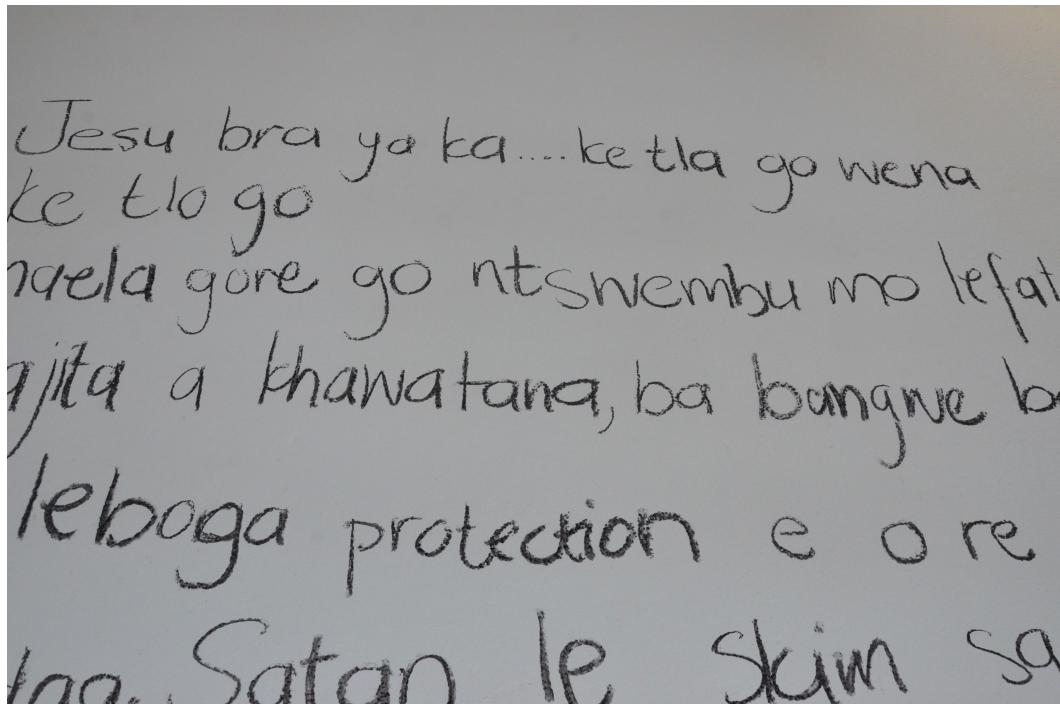 Jesu bra ya ka....ke tla go wena
ke tlo go
naela gore go ntswembu mo lefat
ajita a khawatana, ba bangwe b
leboga protection e o re
Satan le Skim sa